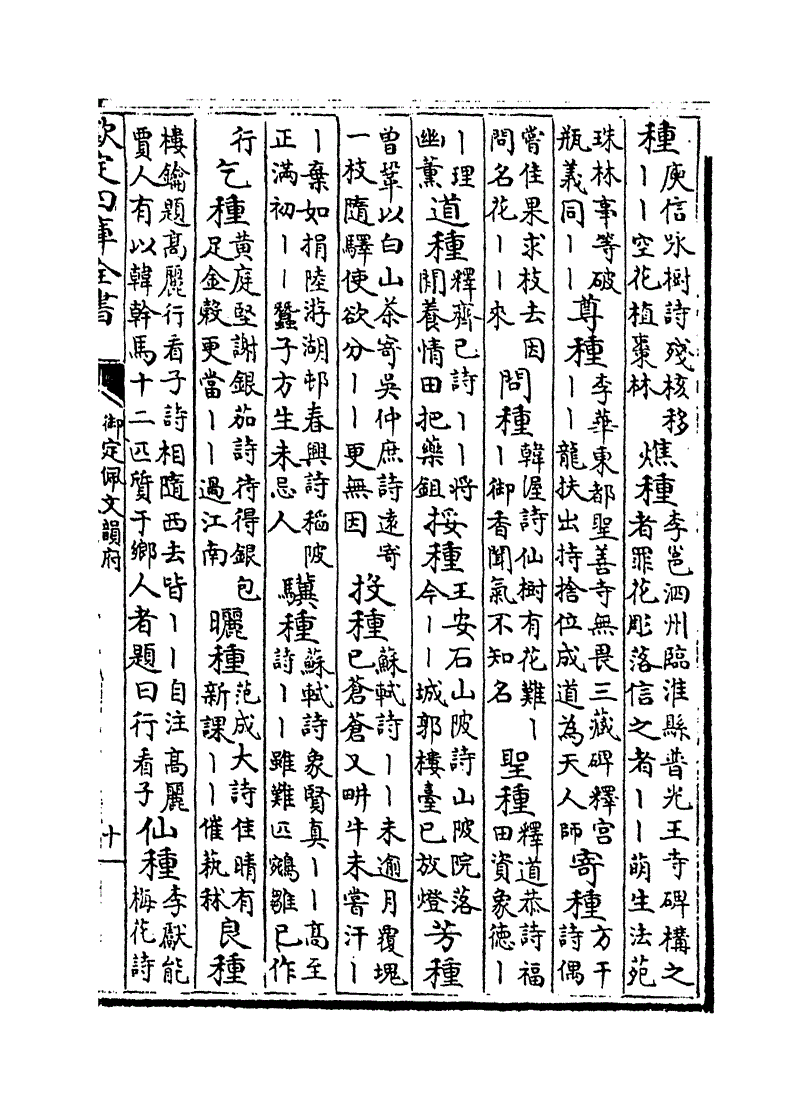 種庾信詠樹詩殘核移丨丨空花植棗林燋種李邕泗州臨淮縣普光王寺碑構之者罪花彫落信之者丨丨萌生法苑
珠林事等破瓶義同丨丨尊種李華東都聖善寺無畏三藏碑釋宫丨丨龍扶出持捨位成道為天人師寄種方干詩偶
嘗佳果求枝去因問名花丨丨來問種韓渥詩仙樹有花難丨丨御香聞氣不知名聖種釋道恭詩福田資象德丨
丨理幽薰道種釋齊己詩丨丨將閒養情田把藥鉏挼種王安石山陂詩山陂院落今丨丨城郭樓臺已放燈芳種
曾鞏以白山茶寄吳仲庶詩遠寄一枝隨驛使欲分丨丨更無因投種蘇軾詩丨丨未逾月覆塊已蒼蒼又畊牛未嘗汗丨
丨棄如捐陸游湖邨春興詩稻陂正滿初丨丨蠶子方生未忌人驥種蘇軾詩象賢真丨丨高至詩丨丨雖難匹鵷雛已作
行乞種黄庭堅謝銀茄詩待得銀包足金穀更當丨丨過江南曬種范成大詩佳晴有新課丨丨催蓺秫良種
樓鑰題高麗行看子詩相隨西去皆丨丨自注高麗賈人有以韓幹馬十二匹質于鄉人者題曰行看子仙種李獻能梅花詩
欽定四庫全書
御定佩文韻府
十